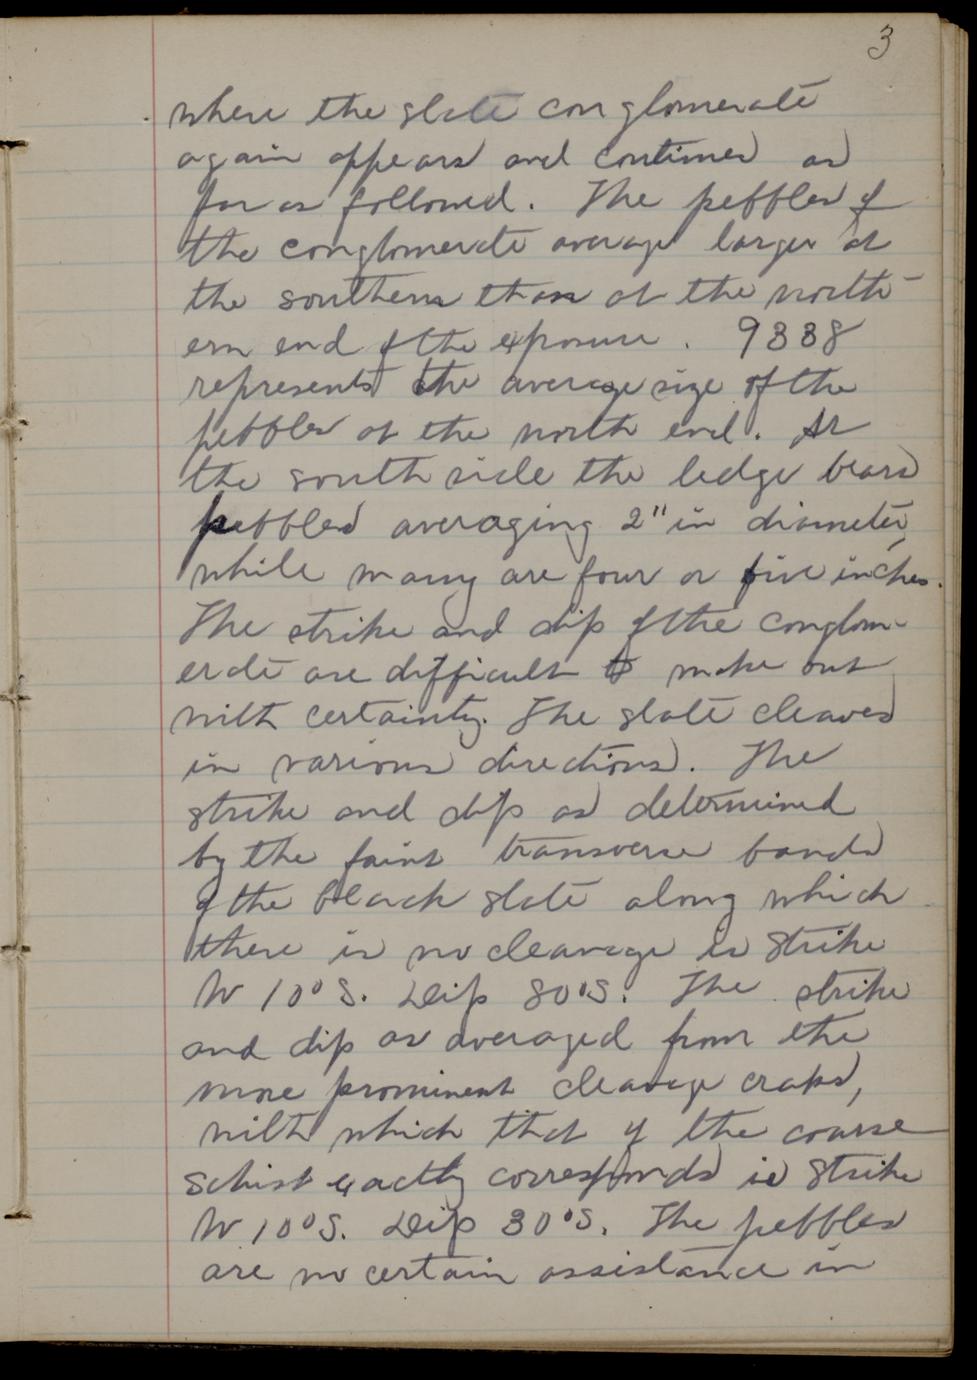 3
where the slate conglomerate
again appears and continues as
far as followed. The pebbles of
the conglomerate average larger at
the southern than at the north-
ern end of the exposure. 9338
represents the average size of the
pebbles at the north end. At
the south side the ledge bears
pebbles averaging 2" in diameter,
while many are four or five inches.
The strike and dip of the conglom-
erate are difficult to make out
with certainty. The slate cleaves
in various directions. The
strike and dip as determined
by the faint transverse bands
of the black slate along which
there is no cleavage is Strike
W 10° S. Dip 80° S. The strike
and dip as averaged from the
more prominent cleavage cracks,
with which that of the coarse
schist exactly corresponds is Strike
W 10° S. Dip 30° S. The pebbles
are no certain assistance in